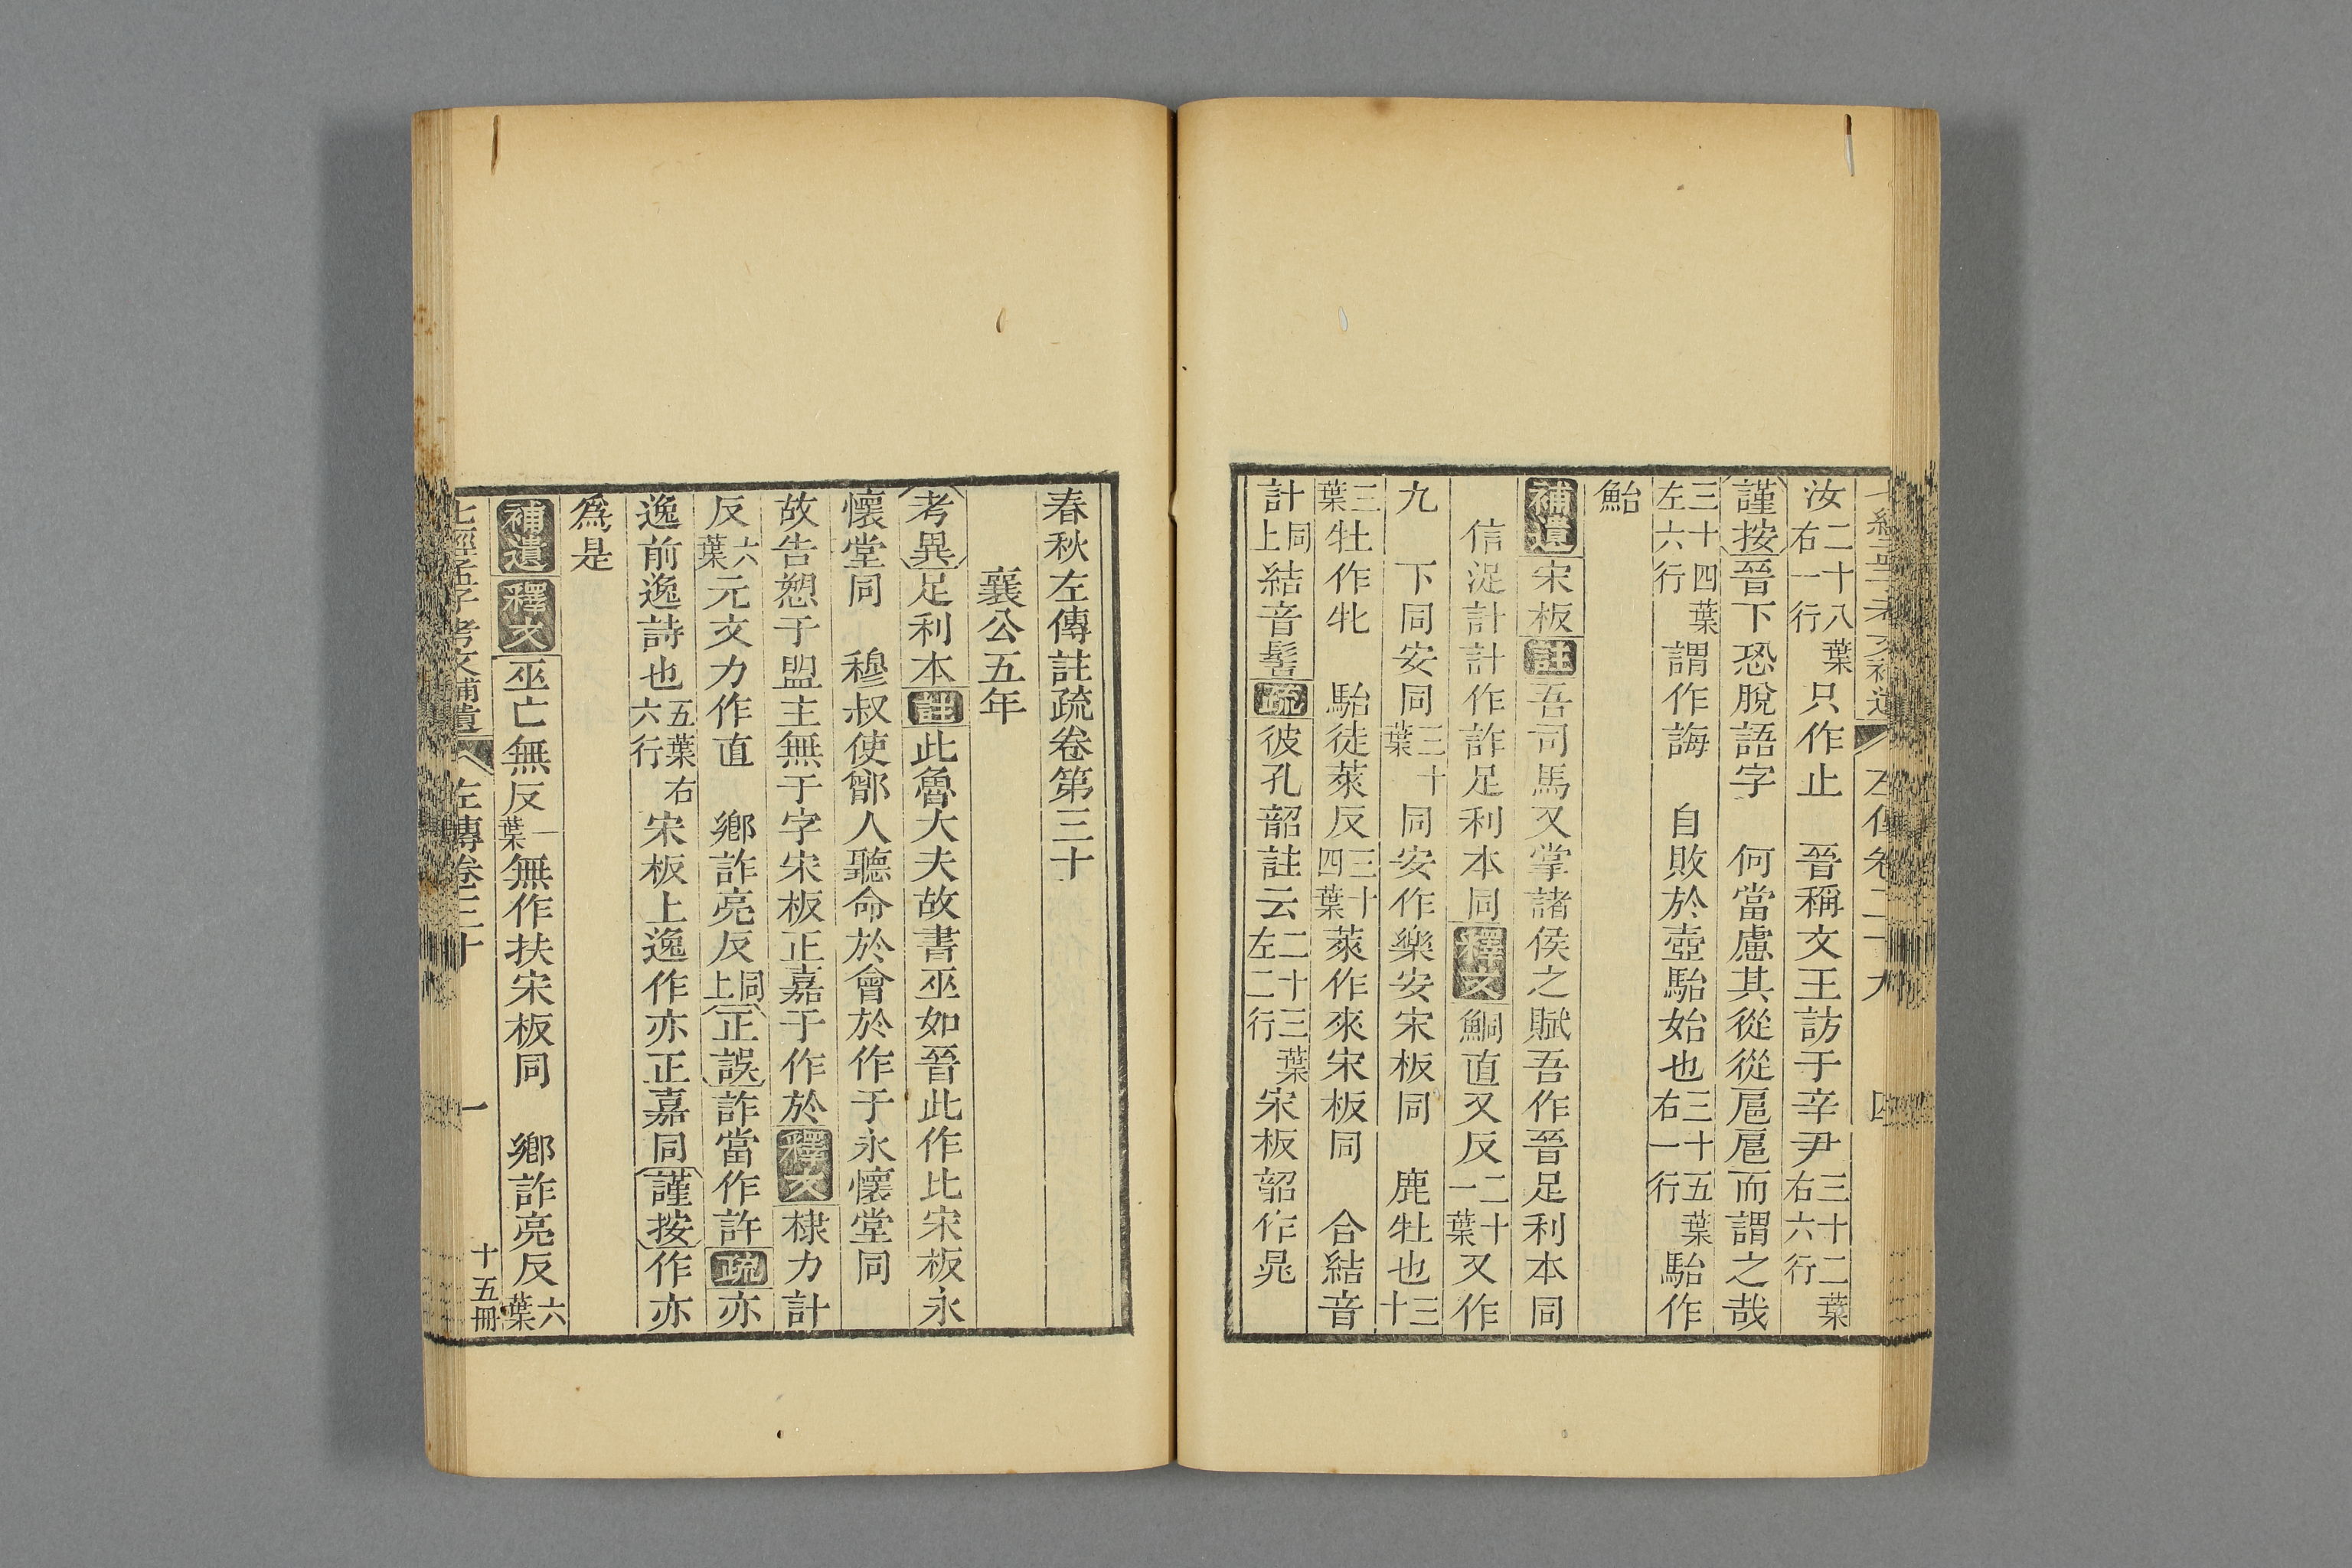 七經孟子考文補遺 左傳卷二十九 四
汝二十八葉右一行只作止 晉稱文王訪于辛尹三十二葉右六行
謹按晉下恐脫語字 何當慮其從從扈扈而謂之哉
三十四葉左六行謂作誨 自敗於壺駘始也三十五葉右一行駘作
鮐
補遺宋板註吾司馬又掌諸侯之賦吾作晉足利本同
信浞計計作詐足利本同釋文鮦直又反二十一葉又作
九 下同安同三十葉同安作樂安宋板同 鹿牡也三十
三葉牡作牝 駘徒萊反三十四葉萊作來宋板同 合結音
計同上結音髻疏彼孔韶註云二十三葉左二行宋板韶作晁
春秋左傳註疏卷第三十
襄公五年
考異足利本註此魯大夫故書巫如晉此作比宋板永
懷堂同 穆叔使鄫人聽命於會於作于永懷堂同
故告愬于盟主無于字宋板正嘉于作於釋文棣力計
反六葉元文力作直 鄉詐亮反同上正誤詐當作許疏亦
逸前逸詩也五葉右六行宋板上逸作亦正嘉同謹按作亦
爲是
補遺釋文巫亡無反一葉無作扶宋板同 鄉詐亮反六葉
七經孟子考文補遺 左傳卷三十 一 十五冊